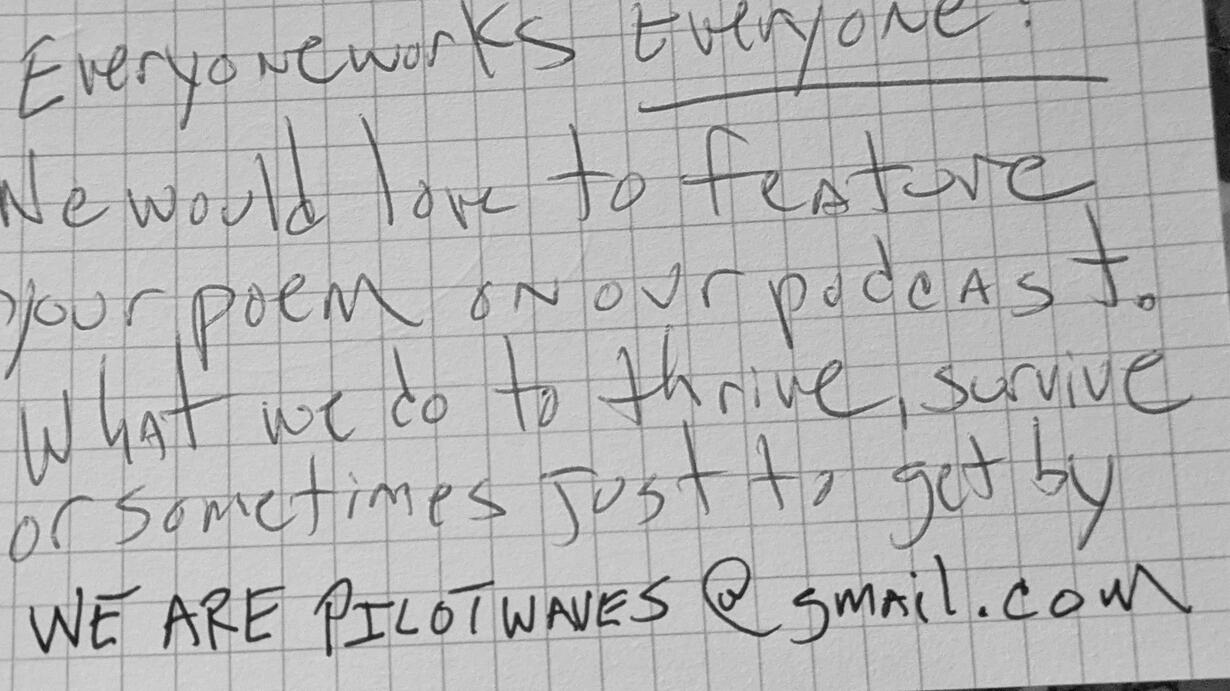 Everyone works Everyone!
We would love to feature
your poem on our podcast.
What we do to thrive, survive
or sometimes just to get by
WE ARE PILOTWAVES@gmail.com